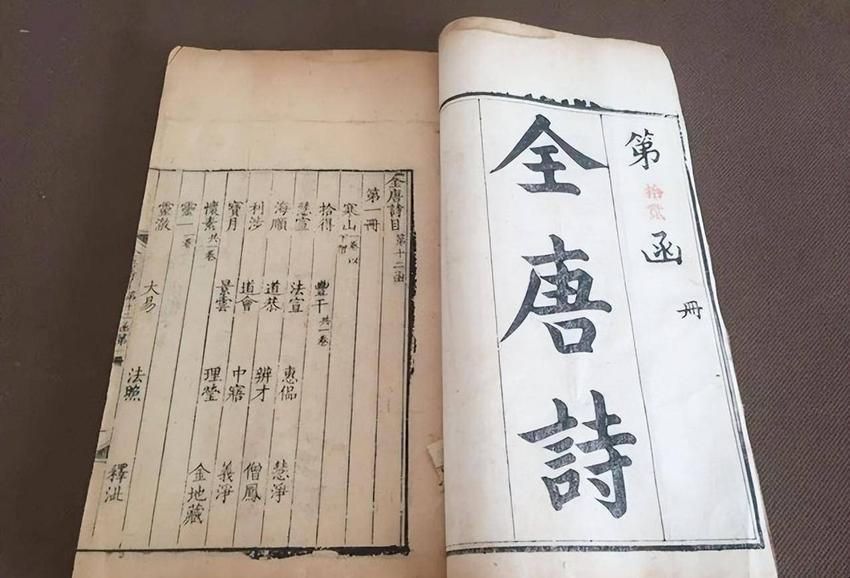 第拾貳函 冊
全唐詩
全唐詩目 第十二函
第一冊
寒山
拾得 豐干 共一卷
慧宣 法宣 惠偘 慧淨
海順 道恭 辨才 僧鳳
利涉 道會 中寤 義淨
寶月 景雲 理瑩 金地藏
懷素 共一卷
靈一 一卷
靈澈 大易 法照 釋泚